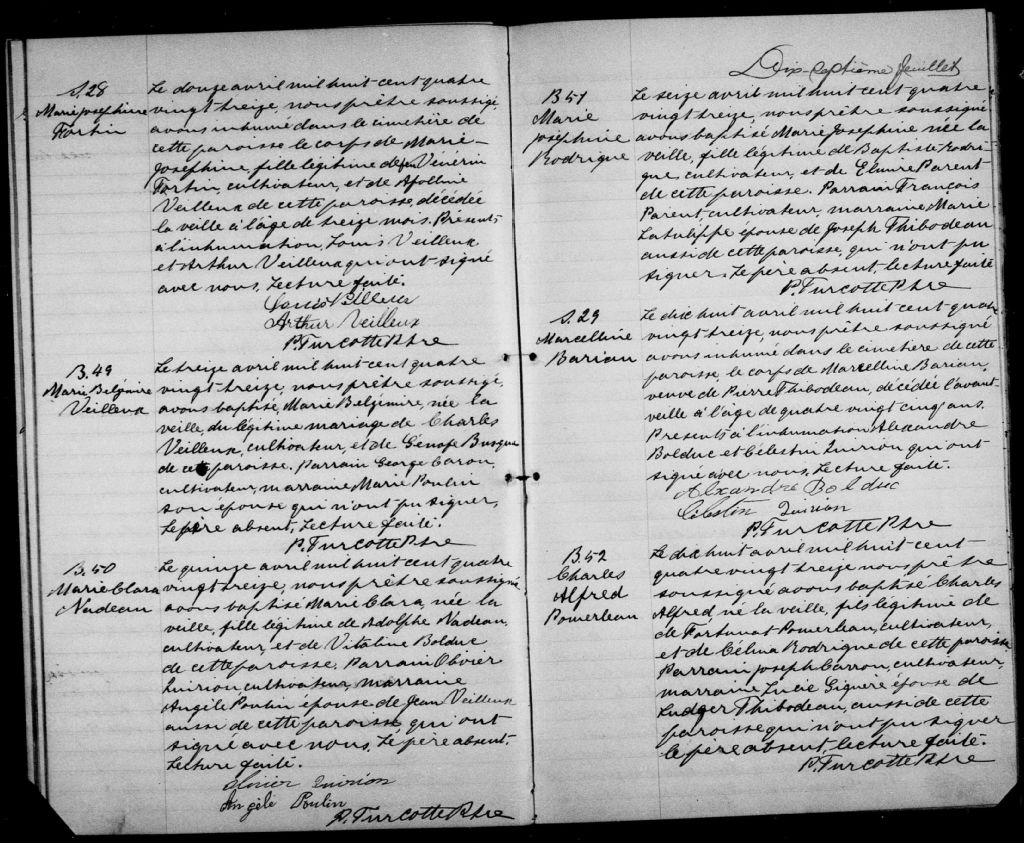 S.28
Marie Josephine
Fortin
Le douze avril mil huit cent quatre
vingt treize, nous prêtre soussigé,
avons inhumé dans le cimetère de
cette paroisse le corps de Marie-
Josephine, fille légitime de Vénérin
Fortin, cultivateur, et de Apolline
Veilleux de cette paroisse, décédée
la veille à l'âge de treize mois. Présents
à l'inhumation, Louis Veilleux
et Arthur Veilleux qui ont signé
avec nous. Lecture faite.
Louis Veilleux
Arthur Veilleux
P. Turcotte Ptre
B.49
Marie Belzimire
Veilleux
Le treize avril mil huit cent quatre
vingt treize, nous prêtre soussigé,
avons baptisé, Marie Belzimire, née la
veille, du légitime mariage de Charles
Veilleux, cultivateur, et de Genofe Busque
de cette paroisse. Parrain George Caron,
cultivateur, marraine Marie Poulin
son épouse qui n'ont pu signer,
Le père absent, Lecture faite.
P. Turcotte Ptre
B.50
Marie Clara
Nadeau
Le quinze avril mil huit cent quatre
vingt treize, nous prêtre soussigné
avons baptisé Marie Clara, née la
veille, fille légitime de Adolphe Nadeau,
cultivateur, et de Vitaline Bolduc
de cette paroisse, Parrain Olivier
Quirion, cultivateur, marraine
Angèle Poulin épouse de Jean Veilleux
aussi de cette paroisse qui ont
signé avec nous. Le père absent.
Lecture faite.
Olivier Quirion
Angèle Poulin
P. Turcotte Ptre
Dix-septième feuillet
B 51
Marie
Josephine
Rodrigue
Le seize avril mil huit cent quatre
vingt treize, nous prêtre soussigné
avons baptisé Marie Josephine née la
veille, fille légitime de Baptiste Rodri-
gue, cultivateur, et de Elmire Parent
de cette paroisse. Parrain François
Parent, cultivateur, marraine Marie
Latulippe épouse de Joseph Thibodeau
aussi de cette paroisse, qui n'ont pu
signer. Le père absent, lecture faite
P. Turcotte Ptre
S.29
Marcelline
Bariau
Le dix huit avril mil huit cent quatre
vingt treize, nous prêtre soussigné
avons inhumé dans le cimetière de cette
paroisse, le corps de Marcelline Bariau,
veuve de Pierre Thibodeau, décédée l'avant
veille à l'âge de quatre vingt cinq ans.
Présents à l'inhumation Alexandre
Bolduc et Célestin Quirion qui ont
signé avec nous. Lecture faite.
Alxandre Bolduc
Célestin Quirion
P. Turcotte Ptre
B.52
Charles
Alfred
Pomerleau
Le dix huit avril mil huit cent
quatre vingt treize nous prêtre
soussigné avons baptisé Charles
Alfred né la veille, fils légitime de
de Fortunat Pomerleau, cultivateur,
et de Célina Rodrigue de cette paroisse
Parrain Joseph Carron, cultivateur,
marraine Lucie Giguère épouse de
Ludger Thibodeau, aussi de cette
paroisse qui n'ont pu signer
le père absent, lecture faite.
P. Turcotte Ptre